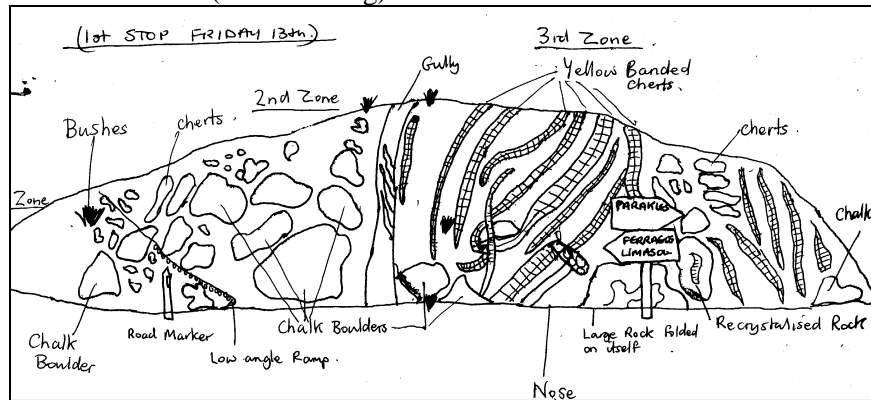 (1st STOP FRIDAY 13th.)
3rd Zone.
Gully
Yellow Banded
cherts.
2nd Zone
Bushes
cherts.
cherts
Zone
PARAKLIS
FERRAGOS
LIMASOL
Chalk
Chalk
Boulder
Road Marker
Low angle Ramp.
Chalk Boulders
Large Rock Folded
on itself
Recrystalised Rock
Nose